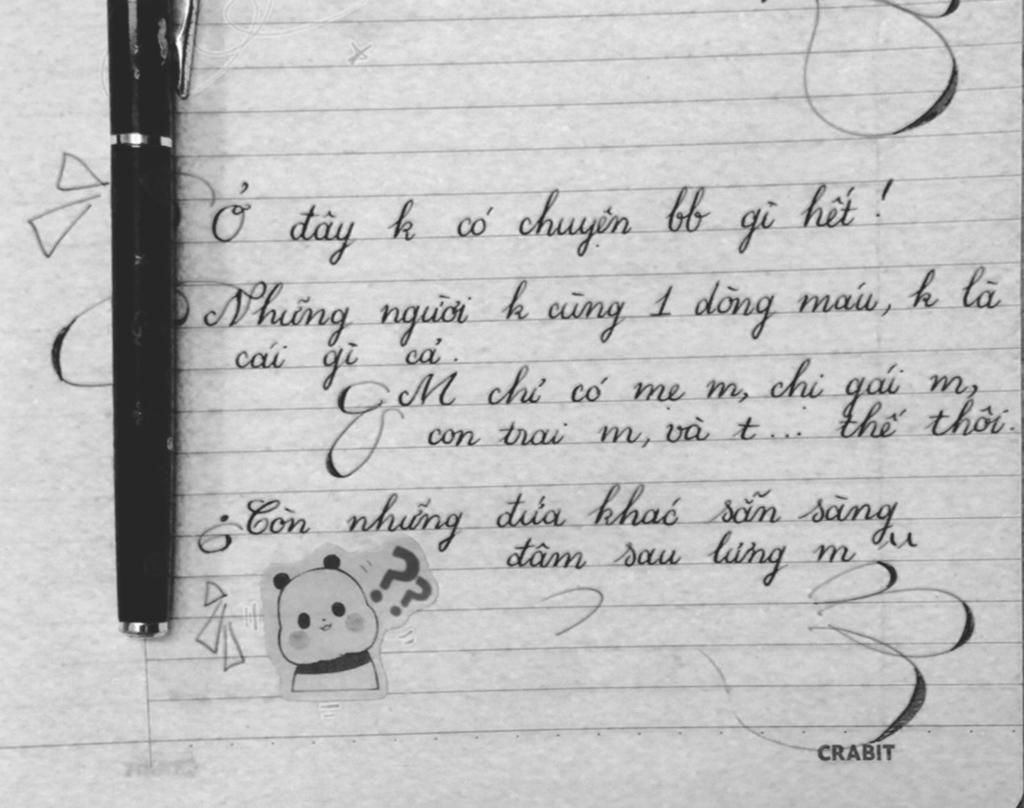 Ở đây k có chuyện bb gì hết !
Những người k cùng 1 dòng máu, k là
cái gì cả.
M chỉ có mẹ m, chi gái m,
con trai m, và t... thế thôi.
Còn những đứa khác sẵn sàng
đâm sau lưng m
??
CRABIT